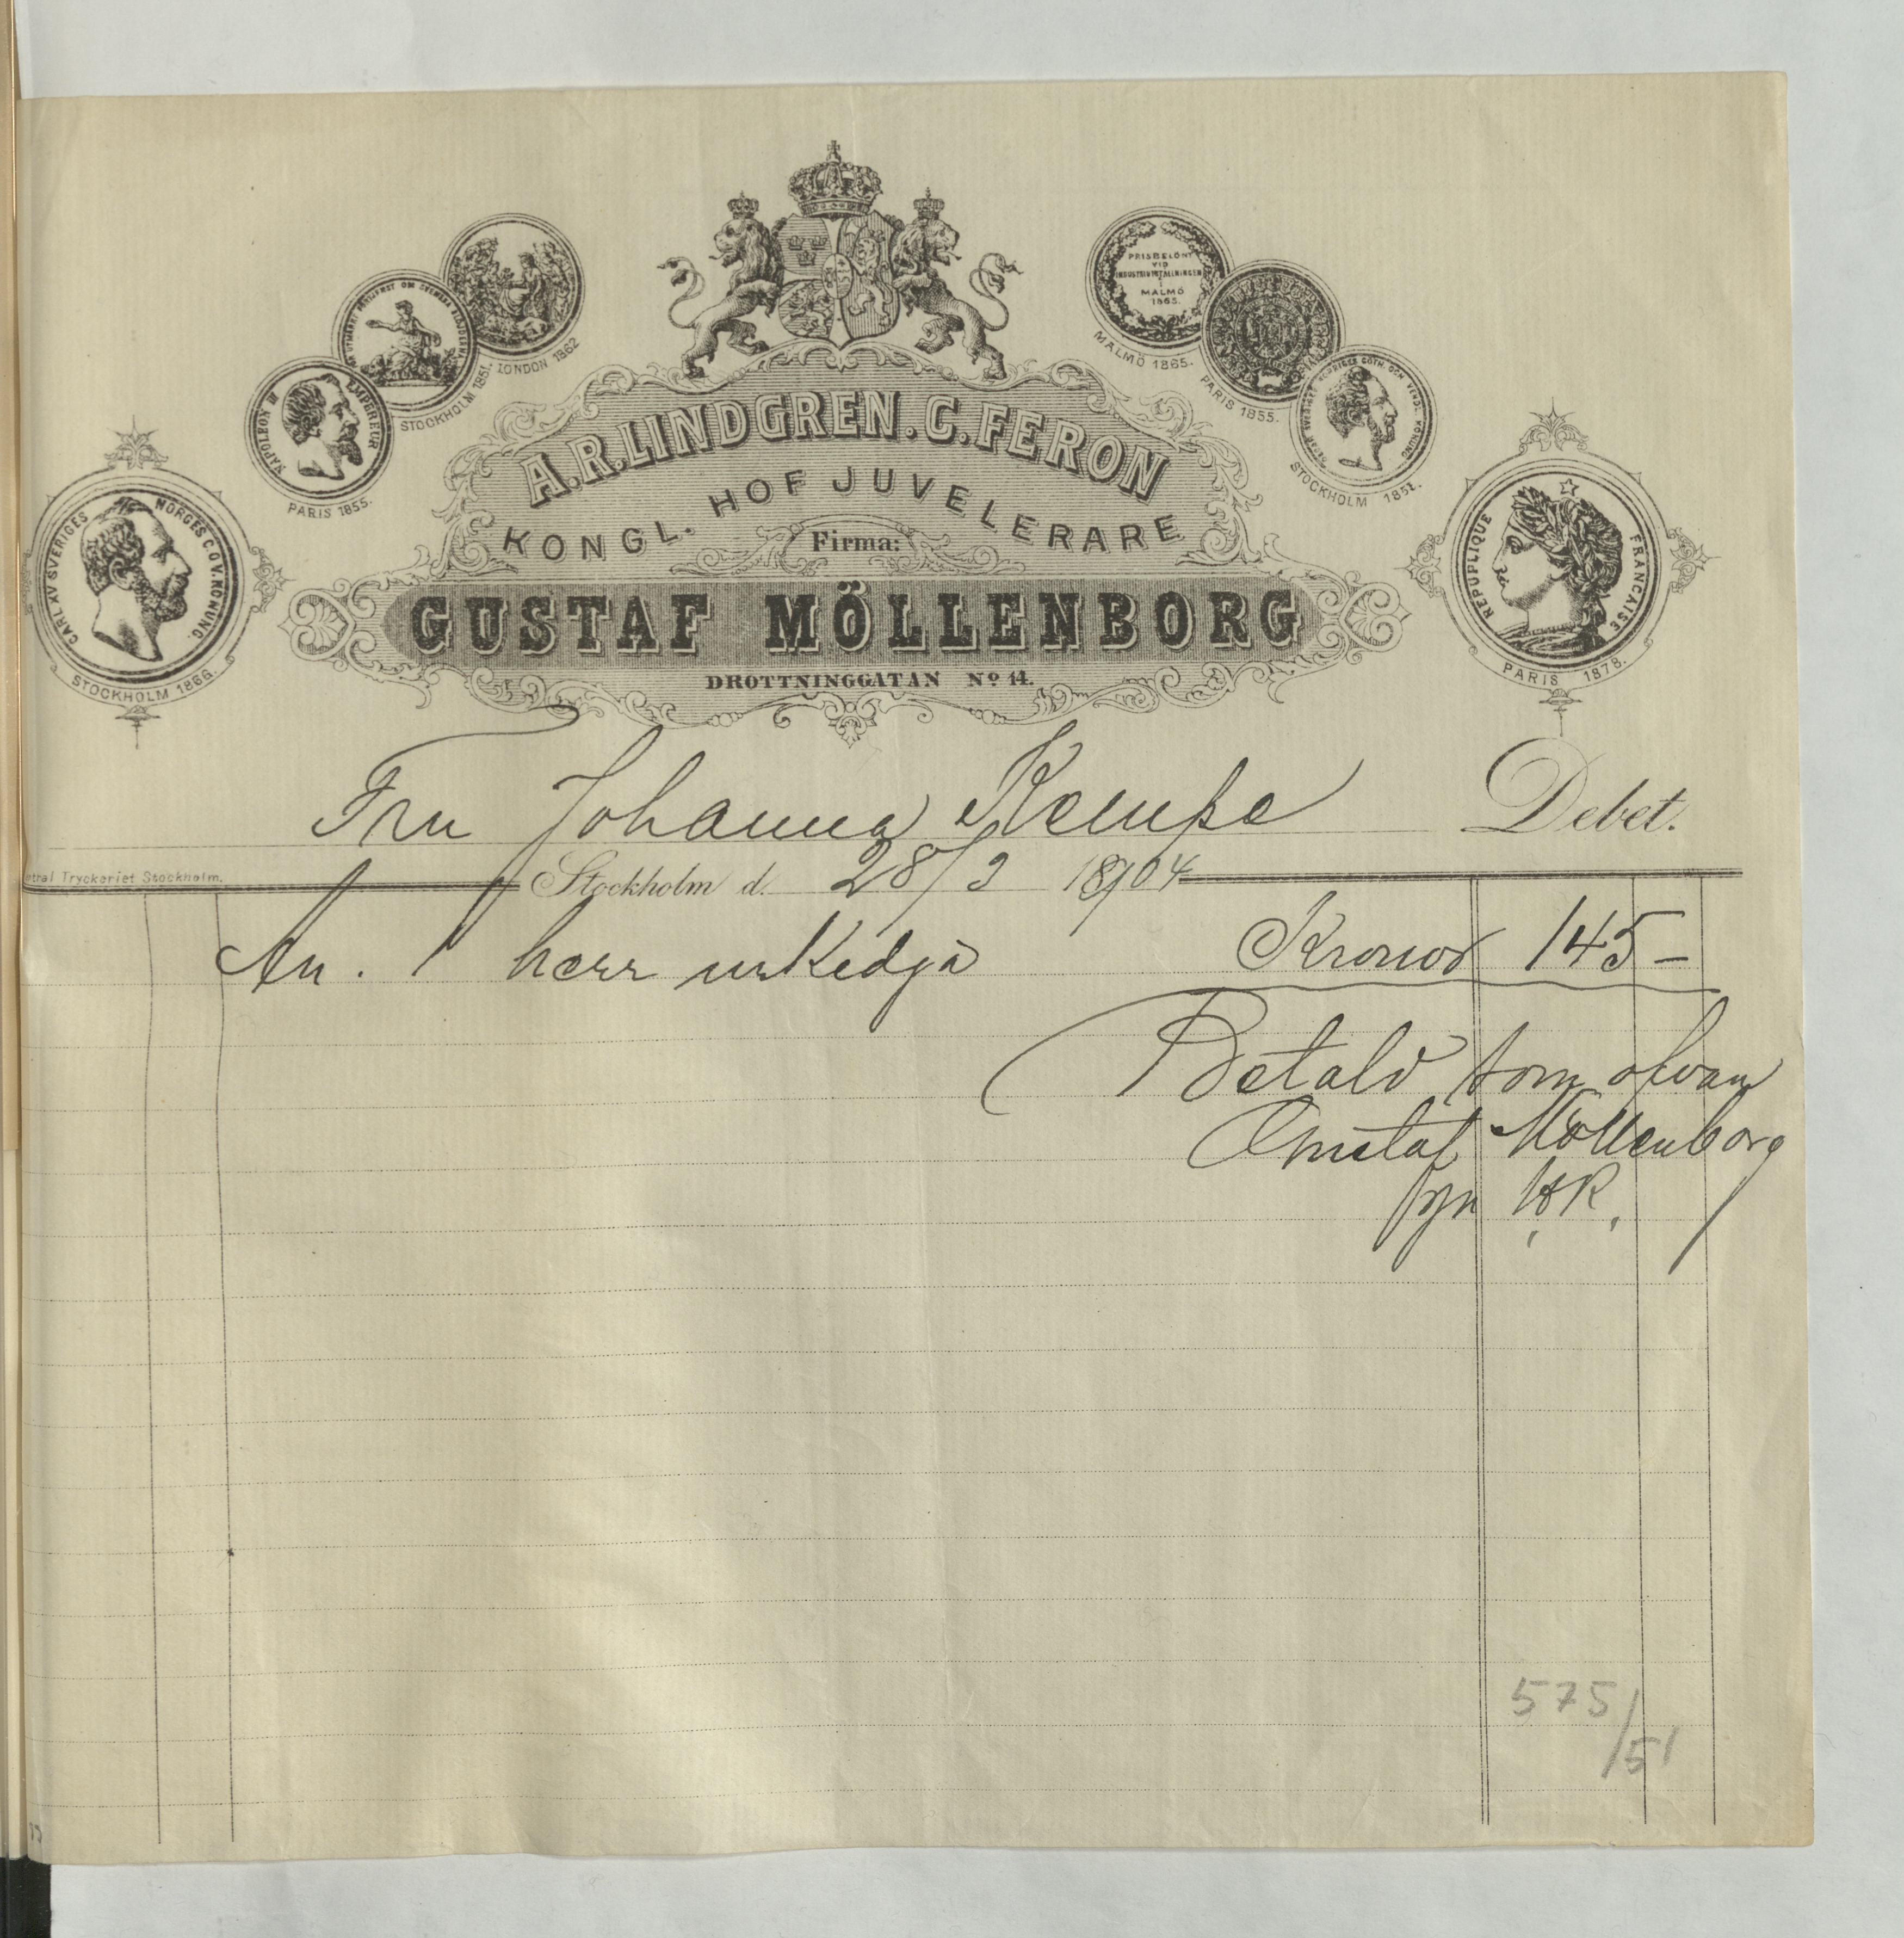 PRISBELÖNT
VID
INDUSTRIUTSTÄLLNINGEN
I
MALMÖ
1865.
LONDON 1862
STOCKHOLM 1851.
MALMÖ 1865.
PARIS 1855.
NAPOLEON III EMPEREUR
PARIS 1855.
STOCKHOLM 1851.
CARL XV SVERIGES NORGES G. O. V. KONUNG
STOCKHOLM 1866.
REPUPLIQUE FRANCAISE
PARIS 1878.
A. R. LINDGREN. C. FERON
KONGL. HOF JUVELERARE
Firma:
GUSTAF MÖLLENBORG
DROTTNINGGATAN No 14.
Fru Johanna Kempe Debet.
ntral Tryckeriet Stockholm.
Stockholm d. 28/3 1904
An. 1 herr urkedja Kronor 145 –
Betald som ofvan
Gustaf Möllenborg
gm HR.
575/51